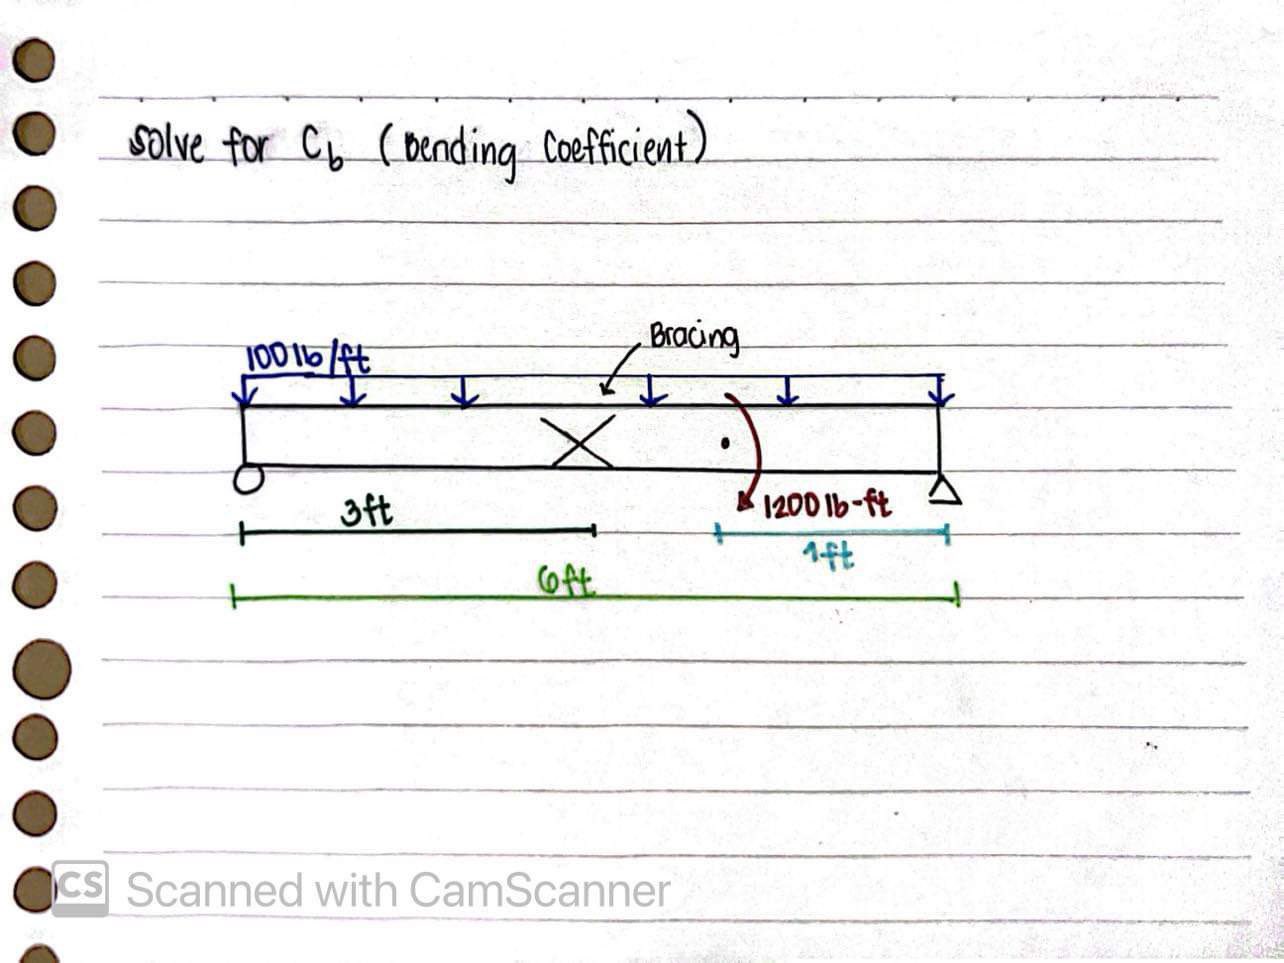 solve for Cb (Bending Coefficient)
Bracing
100 lb/ft
1200 lb-ft
3ft
1ft
6ft
CS Scanned with CamScanner